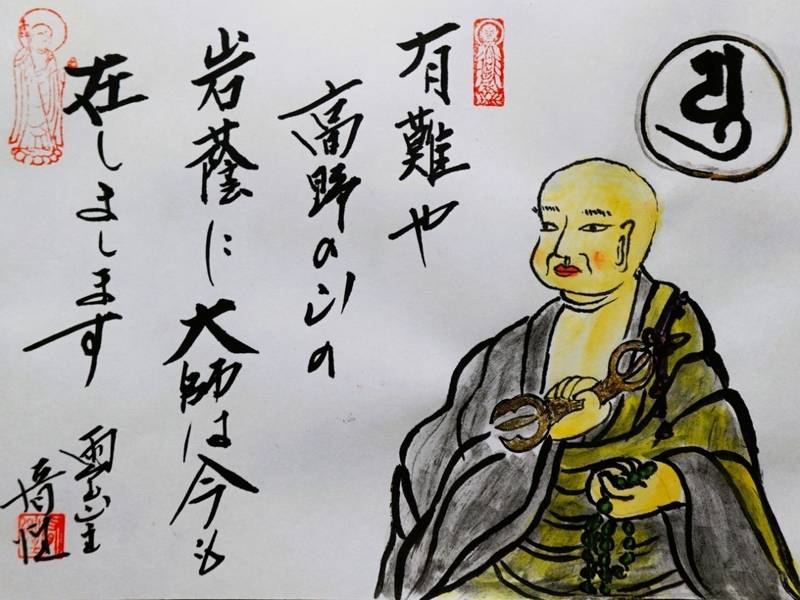 有難や
高野の山の
岩蔭に大師は今も
在しまします